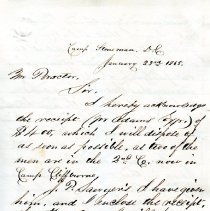 Camp Stoneman, D.C.
January 23rd 1865.
Mr Proctor,
Sir.
I hereby acknowledge
the receipt (pr Adams Expr.) of
$400, which I will dispose of
as soon as possible, as two of the
men are in the 2nd Co. now in
Camp
J. P. Sawyer's I have given
him, and I enclose the receipt,